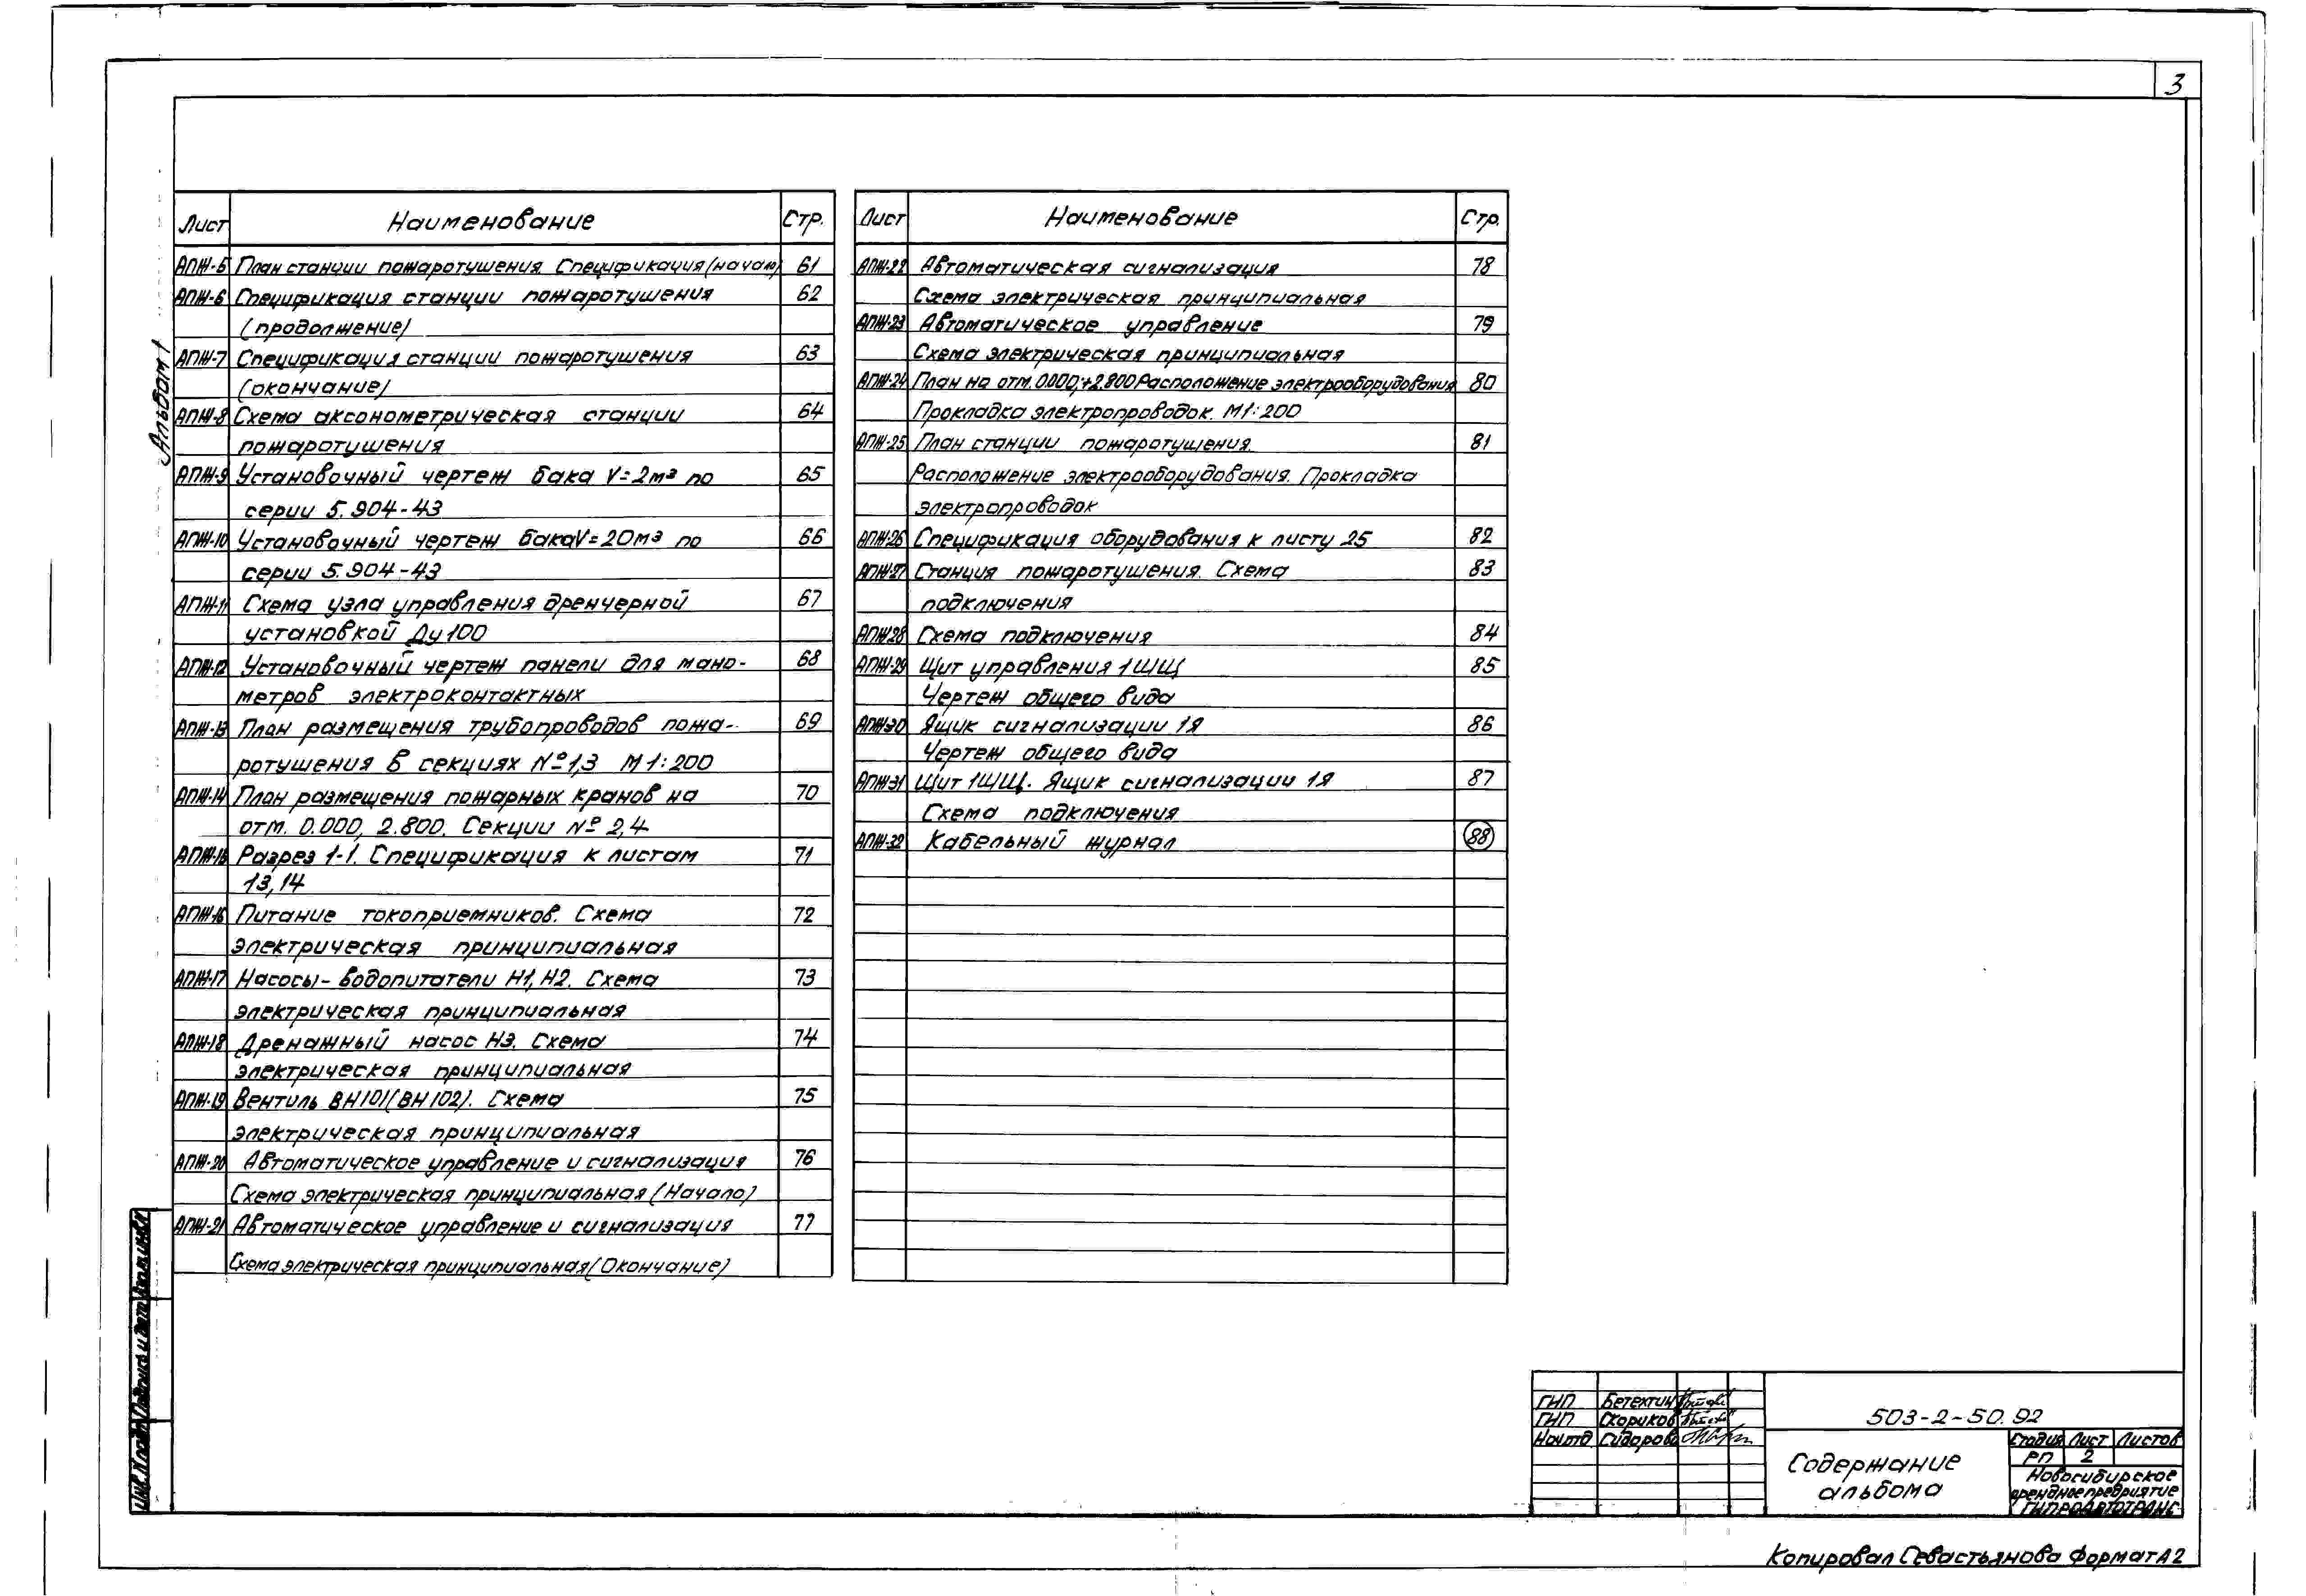 3
Альбом 1
Лист Наименование Стр.
АПЖ-5 План станции пожаротушения. Спецификация (начало) 61
АПЖ-6 Спецификация станции пожаротушения 62
(продолжение)
АПЖ-7 Спецификация станции пожаротушения 63
(окончание)
АПЖ-8 Схема аксонометрическая станции 64
пожаротушения
АПЖ-9 Установочный чертеж бака V=2м³ по 65
серии 5.904-43
АПЖ-10 Установочный чертеж бака V=20м³ по 66
серии 5.904-43
АПЖ-11 Схема узла управления дренчерной 67
установкой Ду100
АПЖ-12 Установочный чертеж панели для мано- 68
метров электроконтактных
АПЖ-13 План размещения трубопроводов пожа- 69
ротушения в секциях №1,3 М1:200
АПЖ-14 План размещения пожарных кранов на 70
отм. 0.000, 2.800. Секции № 2,4
АПЖ-15 Разрез 1-1. Спецификация к листам 71
13,14
АПЖ-16 Питание токоприемников. Схема 72
электрическая принципиальная
АПЖ-17 Насосы-водопитатели Н1, Н2. Схема 73
электрическая принципиальная
АПЖ-18 Дренажный насос Н3. Схема 74
электрическая принципиальная
АПЖ-19 Вентиль ВН101(ВН102). Схема 75
электрическая принципиальная
АПЖ-20 Автоматическое управление и сигнализация 76
Схема электрическая принципиальная (Начало)
АПЖ-21 Автоматическое управление и сигнализация 77
Схема электрическая принципиальная (Окончание)
Лист Наименование Стр.
АПЖ-22 Автоматическая сигнализация 78
Схема электрическая принципиальная
АПЖ-23 Автоматическое управление 79
Схема электрическая принципиальная
АПЖ-24 План на отм. 0.000,+2.800 Расположение электрооборудования 80
Прокладка электропроводок. М1:200
АПЖ-25 План станции пожаротушения. 81
Расположение электрооборудования. Прокладка
электропроводок
АПЖ-26 Спецификация оборудования к листу 25 82
АПЖ-27 Станция пожаротушения. Схема 83
подключения
АПЖ-28 Схема подключения 84
АПЖ-29 Щит управления 1ШЩ 85
Чертеж общего вида
АПЖ-30 Ящик сигнализации 1Я 86
Чертеж общего вида
АПЖ-31 Щит 1ШЩ. Ящик сигнализации 1Я 87
Схема подключения
АПЖ-32 Кабельный журнал 88
Инв.№ подл. Подпись и дата Взам.инв.№
ГИП Бетехтин
ГИП Скориков
Нач.отд Сидоров
503-2-50.92
Содержание
альбома
Стадия Лист Листов
РП 2
Новосибирское
арендное предприятие
ГИПРОАВТОТРАНС
Копировал Севастьянова Формат А2